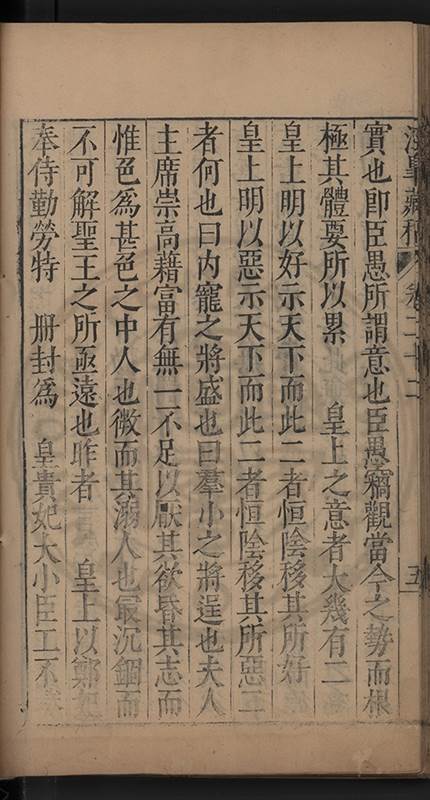 藏稿 卷二十二 五
實也卽臣愚所謂意也臣愚竊觀當今之勢而根
極其體要所以累 皇上之意者大幾有二
皇上明以好示天下而此二者恒陰移其所好
皇上明以惡示天下而此二者恒陰移其所惡二
者何也曰內寵之將盛也曰羣小之將逞也夫人
主席崇高藉富有無一不足以厭其欲昏其志而
惟色爲甚色之中人也微而其溺人也最沉錮而
不可解聖王之所亟遠也昨者 皇上以鄭妃
奉侍勤勞特 冊封爲 皇貴妃大小臣工不